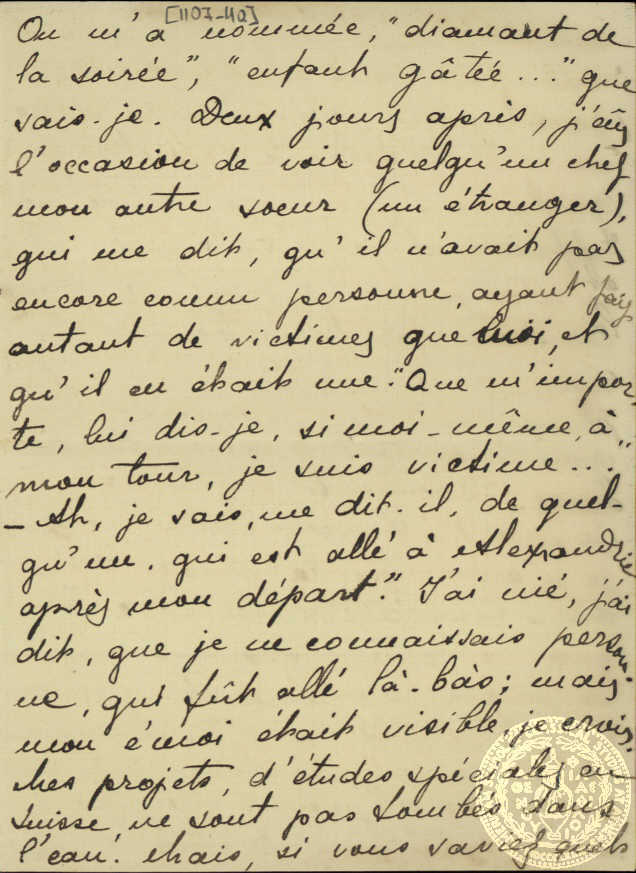 [1107-42]
On m'a nommée, "diamant de
la soirée", "enfant gâtée..." que
sais-je. Deux jours après, j'eûs
l'occasion de voir quelqu'un chez
mon autre soeur (un étranger),
qui me dit, qu'il n'avait pas
encore connu personne, ayant fais
autant de victimes que moi, et
qu'il en était une. "Que m'impor-
te, lui dis-je, si moi-même, à
mon tour, je suis victime..."
– Ah, je sais, me dit-il, de quel-
qu'un, qui est allé à Alexandrie
après mon départ." J'ai nié, j'ai
dit, que je ne connaissais person-
ne, qui fût allé là-bas; mais
mon émoi était visible, je crois.
Mes projets, d'études spéciales en
Suisse, ne sont pas tombés dans
l'eau. Mais, si vous saviez quels